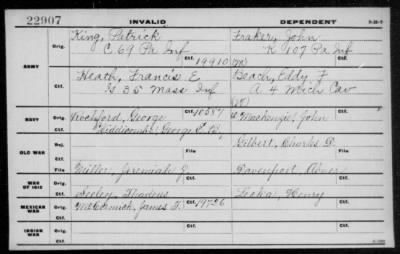 22907
INVALID
DEPENDENT
ARMY
Orig.
King, Patrick
Fraker, John
C 69 Pa Inf
K 107 Pa Inf
Ctf.
19910
Orig.
Heath, Francis E
Beach, Eddy F
G 35 Mass Inf
A 4 Mich Cav
Ctf.
NAVY
Orig.
Rochford, George
10587
Mackenzie, John
Ctf.
George
OLD WAR
Rej.
Gilbert, Charles D.
File
File
WAR OF 1812
Orig.
Miller, Jeremiah J.
Davenport, Abner
Ctf.
MEXICAN WAR
Orig.
Seeley, Thadeus
Henry
Ctf.
McCormick, James T. 19756
INDIAN WAR
Orig.
Ctf.